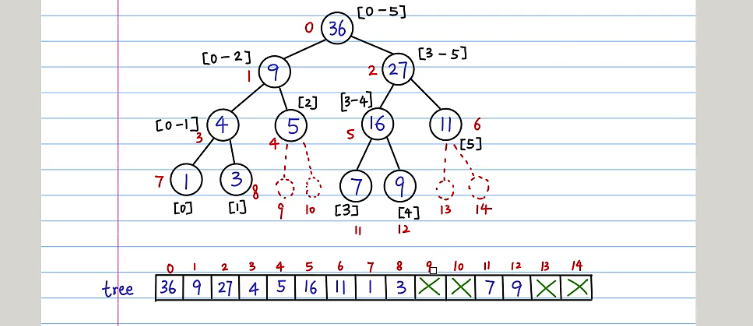 0 36 [0-5]
[0-2] 1 9 2 27 [3-5]
[0-1] 3 4 4 5 [2] [3-4] 5 16 11 6 [5]
7 1 3 8 9 10 7 9 13 14
[0] [1] [3] [4]
11 12
0 1 2 3 4 5 6 7 8 9 10 11 12 13 14
tree 36 9 27 4 5 16 11 1 3 X X 7 9 X X